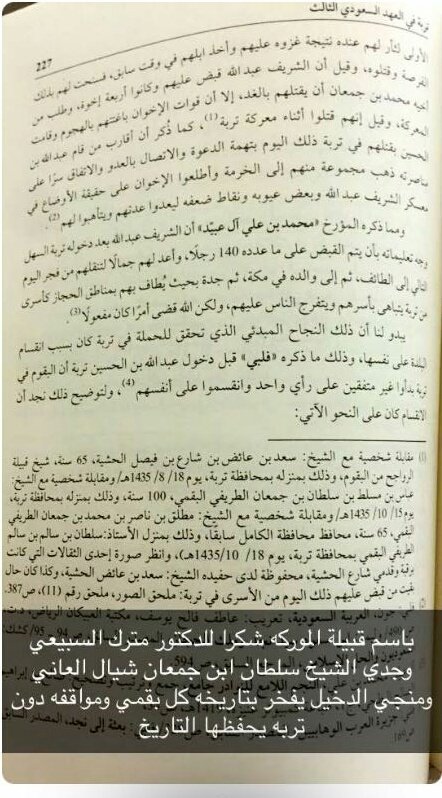 تربة في العهد السعودي الثالث
227
الأولى لثأر لهم عنده نتيجة غزوه عليهم وأخذ ابلهم في وقت سابق، فسنحت لهم بذلك
الفرصة وقتلوه، وقيل أن الشريف عبد الله قبض عليهم وكانوا أربعة إخوة، وطلب من
أخيه محمد بن جمعان أن يقتلهم بالغد، إلا أن قوات الإخوان باغتتهم بالهجوم وقامت
المعركة، وقيل إنهم قتلوا أثناء معركة تربة(1)، كما ذُكر أن أقارب من قام عبد الله بن
الحسين بقتلهم في تربة ذلك اليوم بتهمة الدعوة والاتصال بالعدو والاتفاق سرًا على
مناصرته ذهب مجموعة منهم إلى الخرمة وأطلعوا الإخوان على حقيقة الأوضاع في
معسكر الشريف عبد الله وبعض عيوبه ونقاط ضعفه ليعدوا عدتهم ويتأهبوا لهم(2).
ومما ذكره المؤرخ «محمد بن علي آل عبيّد» أن الشريف عبد الله بعد دخوله تربة السهل
وجه تعليماته بأن يتم القبض على ما عدده 140 رجلًا، وأعد لهم جمالًا لتنقلهم من فجر اليوم
التالي إلى الطائف، ثم إلى والده في مكة، ثم جدة بحيث يُطاف بهم بمناطق الحجاز كأسرى
من تربة يتباهى بأسرهم ويتفرج الناس عليهم، ولكن الله قضى أمرًا كان مفعولًا(3).
يبدو لنا أن ذلك النجاح المبدئي الذي تحقق للحملة في تربة كان بسبب انقسام
البلدة على نفسها، وذلك ما ذكره «فلبي» قبل دخول عبد الله بن الحسين تربة أن البقوم في
تربة بدأوا غير متفقين على رأي واحد وانقسموا على أنفسهم(4)، ولتوضيح ذلك نجد أن
الانقسام كان على النحو الآتي:
(1) مقابلة شخصية مع الشيخ: سعد بن عائض بن شارع بن فيصل الحشية، 65 سنة، شيخ قبيلة
الرواجح من البقوم، وذلك بمنزله بمحافظة تربة، يوم 18/ 8/ 1435هـ/ ومقابلة شخصية مع الشيخ:
عباس بن مسلط بن سلطان بن جمعان الطريفي البقمي، 100 سنة، وذلك بمنزله بمحافظة تربة،
يوم 15/ 10/ 1435هـ/ ومقابلة شخصية مع الشيخ: مطلق بن ناصر بن محمد بن جمعان
البقمي، 65 سنة، محافظ محافظة الكامل سابقًا، وذلك بمنزل الأستاذ: سلطان بن سالم بن سالم
الطريفي البقمي بمحافظة تربة، يوم 18/ 10/ 1435هـ)، وانظر صورة إحدى الثقالات التي كانت
برقبة وقدمي شارع الحشية، محفوظة لدى حفيده الشيخ: سعد بن عائض الحشية، وكذا كان حال
من قبض عليهم ذلك اليوم من الأسرى في تربة: ملحق الصور، ملحق رقم (11)، ص387.
العربية السعودية، تعريب: عاطف فالح يوسف، مكتبة العبيكان الرياض،
باسم قبيلة الموركه شكرا للدكتور مترك السبيعي
وجدي الشيخ سلطان ابن جمعان شيال العاني
ومنجي الدخيل يفخر بتاريخه كل بقمي ومواقفه دون
تربه يحفظها التاريخ